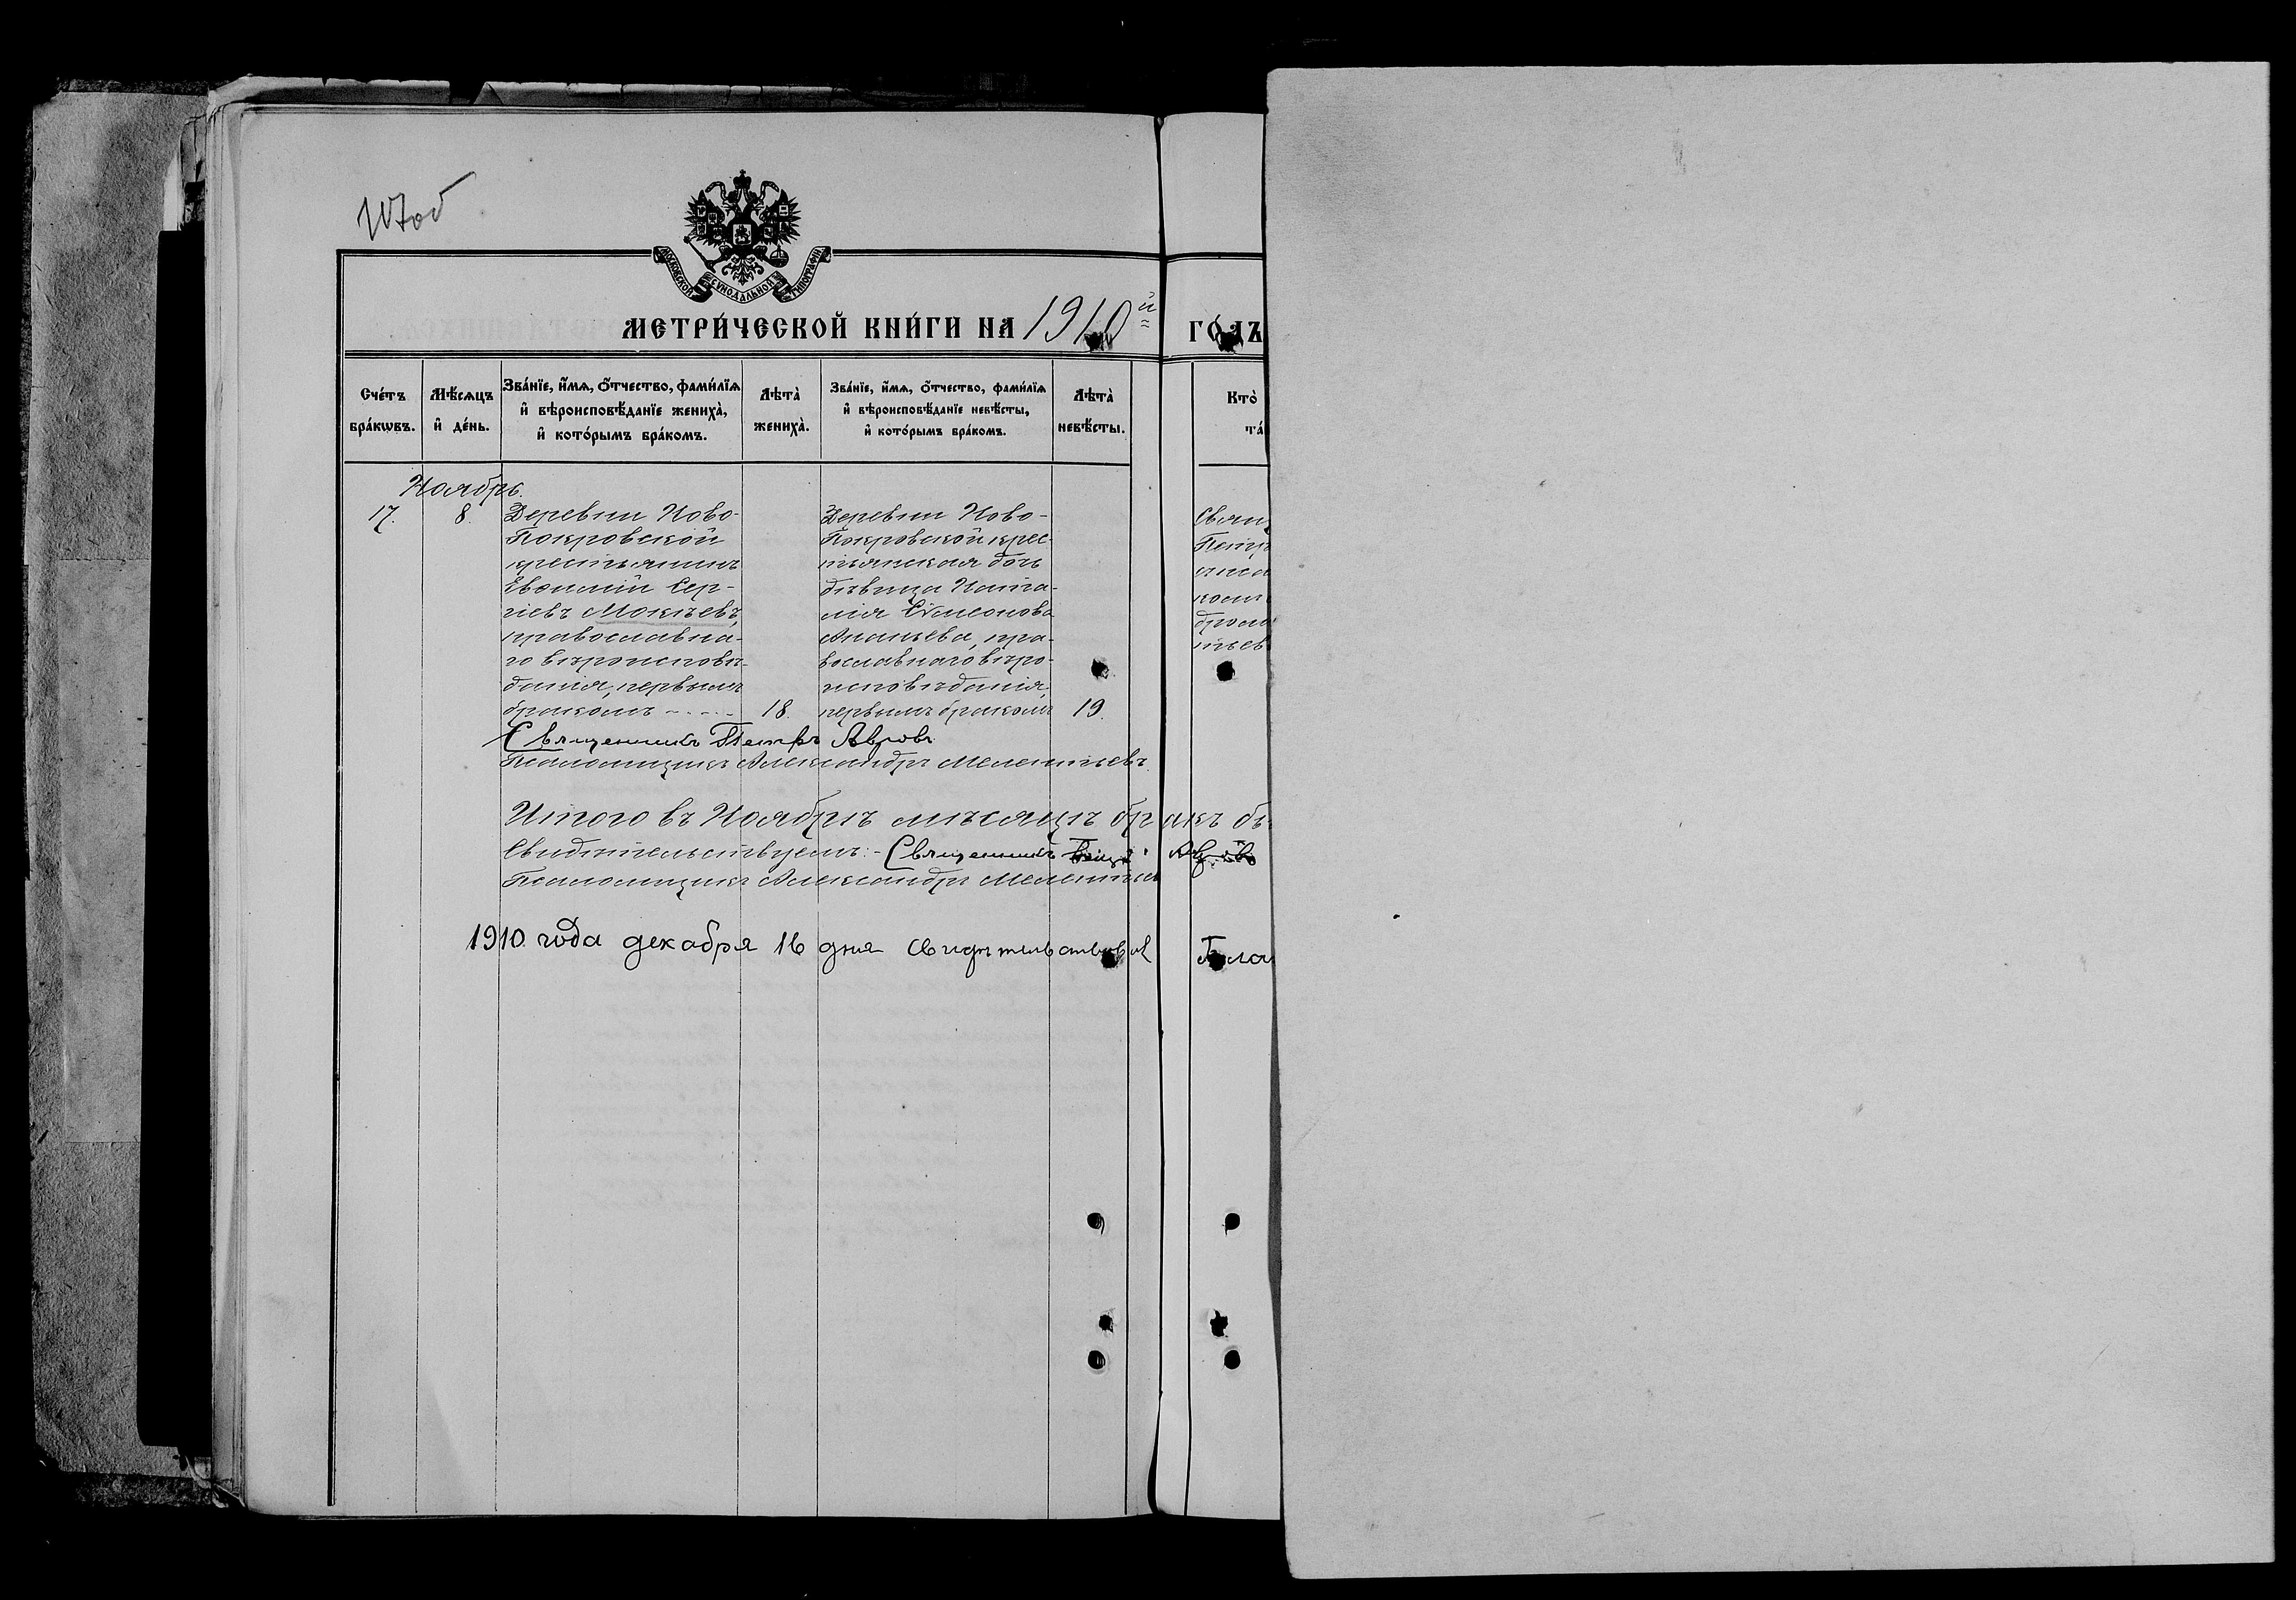 107об
МОСКОВСКОЙ СѴНОДАЛЬНОЙ ТИПОГРАФІИ
МЕТРИ́ЧЕСКОЙ КНИ́ГИ НА 1910й ГО́ДЪ
Сче́тъ бра́кωвъ.
Мѣ́сѧцъ и҆ де́нь.
Зва́нїе, и҆́мѧ, ѻ҆́тчество, фами́лїѧ и҆ вѣроисповѣ́данїе женихà, и҆ кото́рымъ бра́комъ.
Лѣтà женихà.
Зва́нїе, и҆́мѧ, ѻ҆́тчество, фами́лїѧ и҆ вѣроисповѣ́данїе невѣ́сты, и҆ кото́рымъ бра́комъ.
Лѣтà невѣ́сты.
Ктò
та́
Ноябрь.
17.
8.
Деревни Ново-
Покровской
крестьянинъ
Евѳимій Сер-
гіевъ Мокѣевъ,
православна-
го вѣроисповѣ-
данія, первымъ
бракомъ
18.
Деревни Ново-
Покровской крес-
тьянская дочь
дѣвица Ната-
лія Сѵмеонова
Ананьева, пра-
вославнаго вѣро-
исповѣданія,
первымъ бракомъ
19.
Свящ
Петръ
Священникъ Петръ Авровъ
Псаломщикъ Александръ Мелентьевъ.
Итого въ Ноябрѣ мѣсяцѣ бракъ
Свидѣтельствуемъ:- Священникъ Петръ Авровъ
Псаломщикъ Александръ Мелентьев
1910 года декабря 16 дня свидѣтельствовал Благ